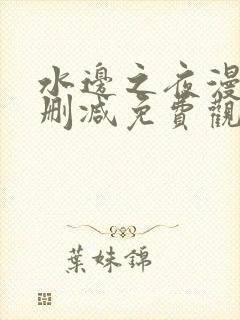 水邊之夜漫
刪減免費觀
葉妹錦